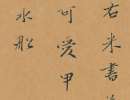 右米書
可愛甲
水船